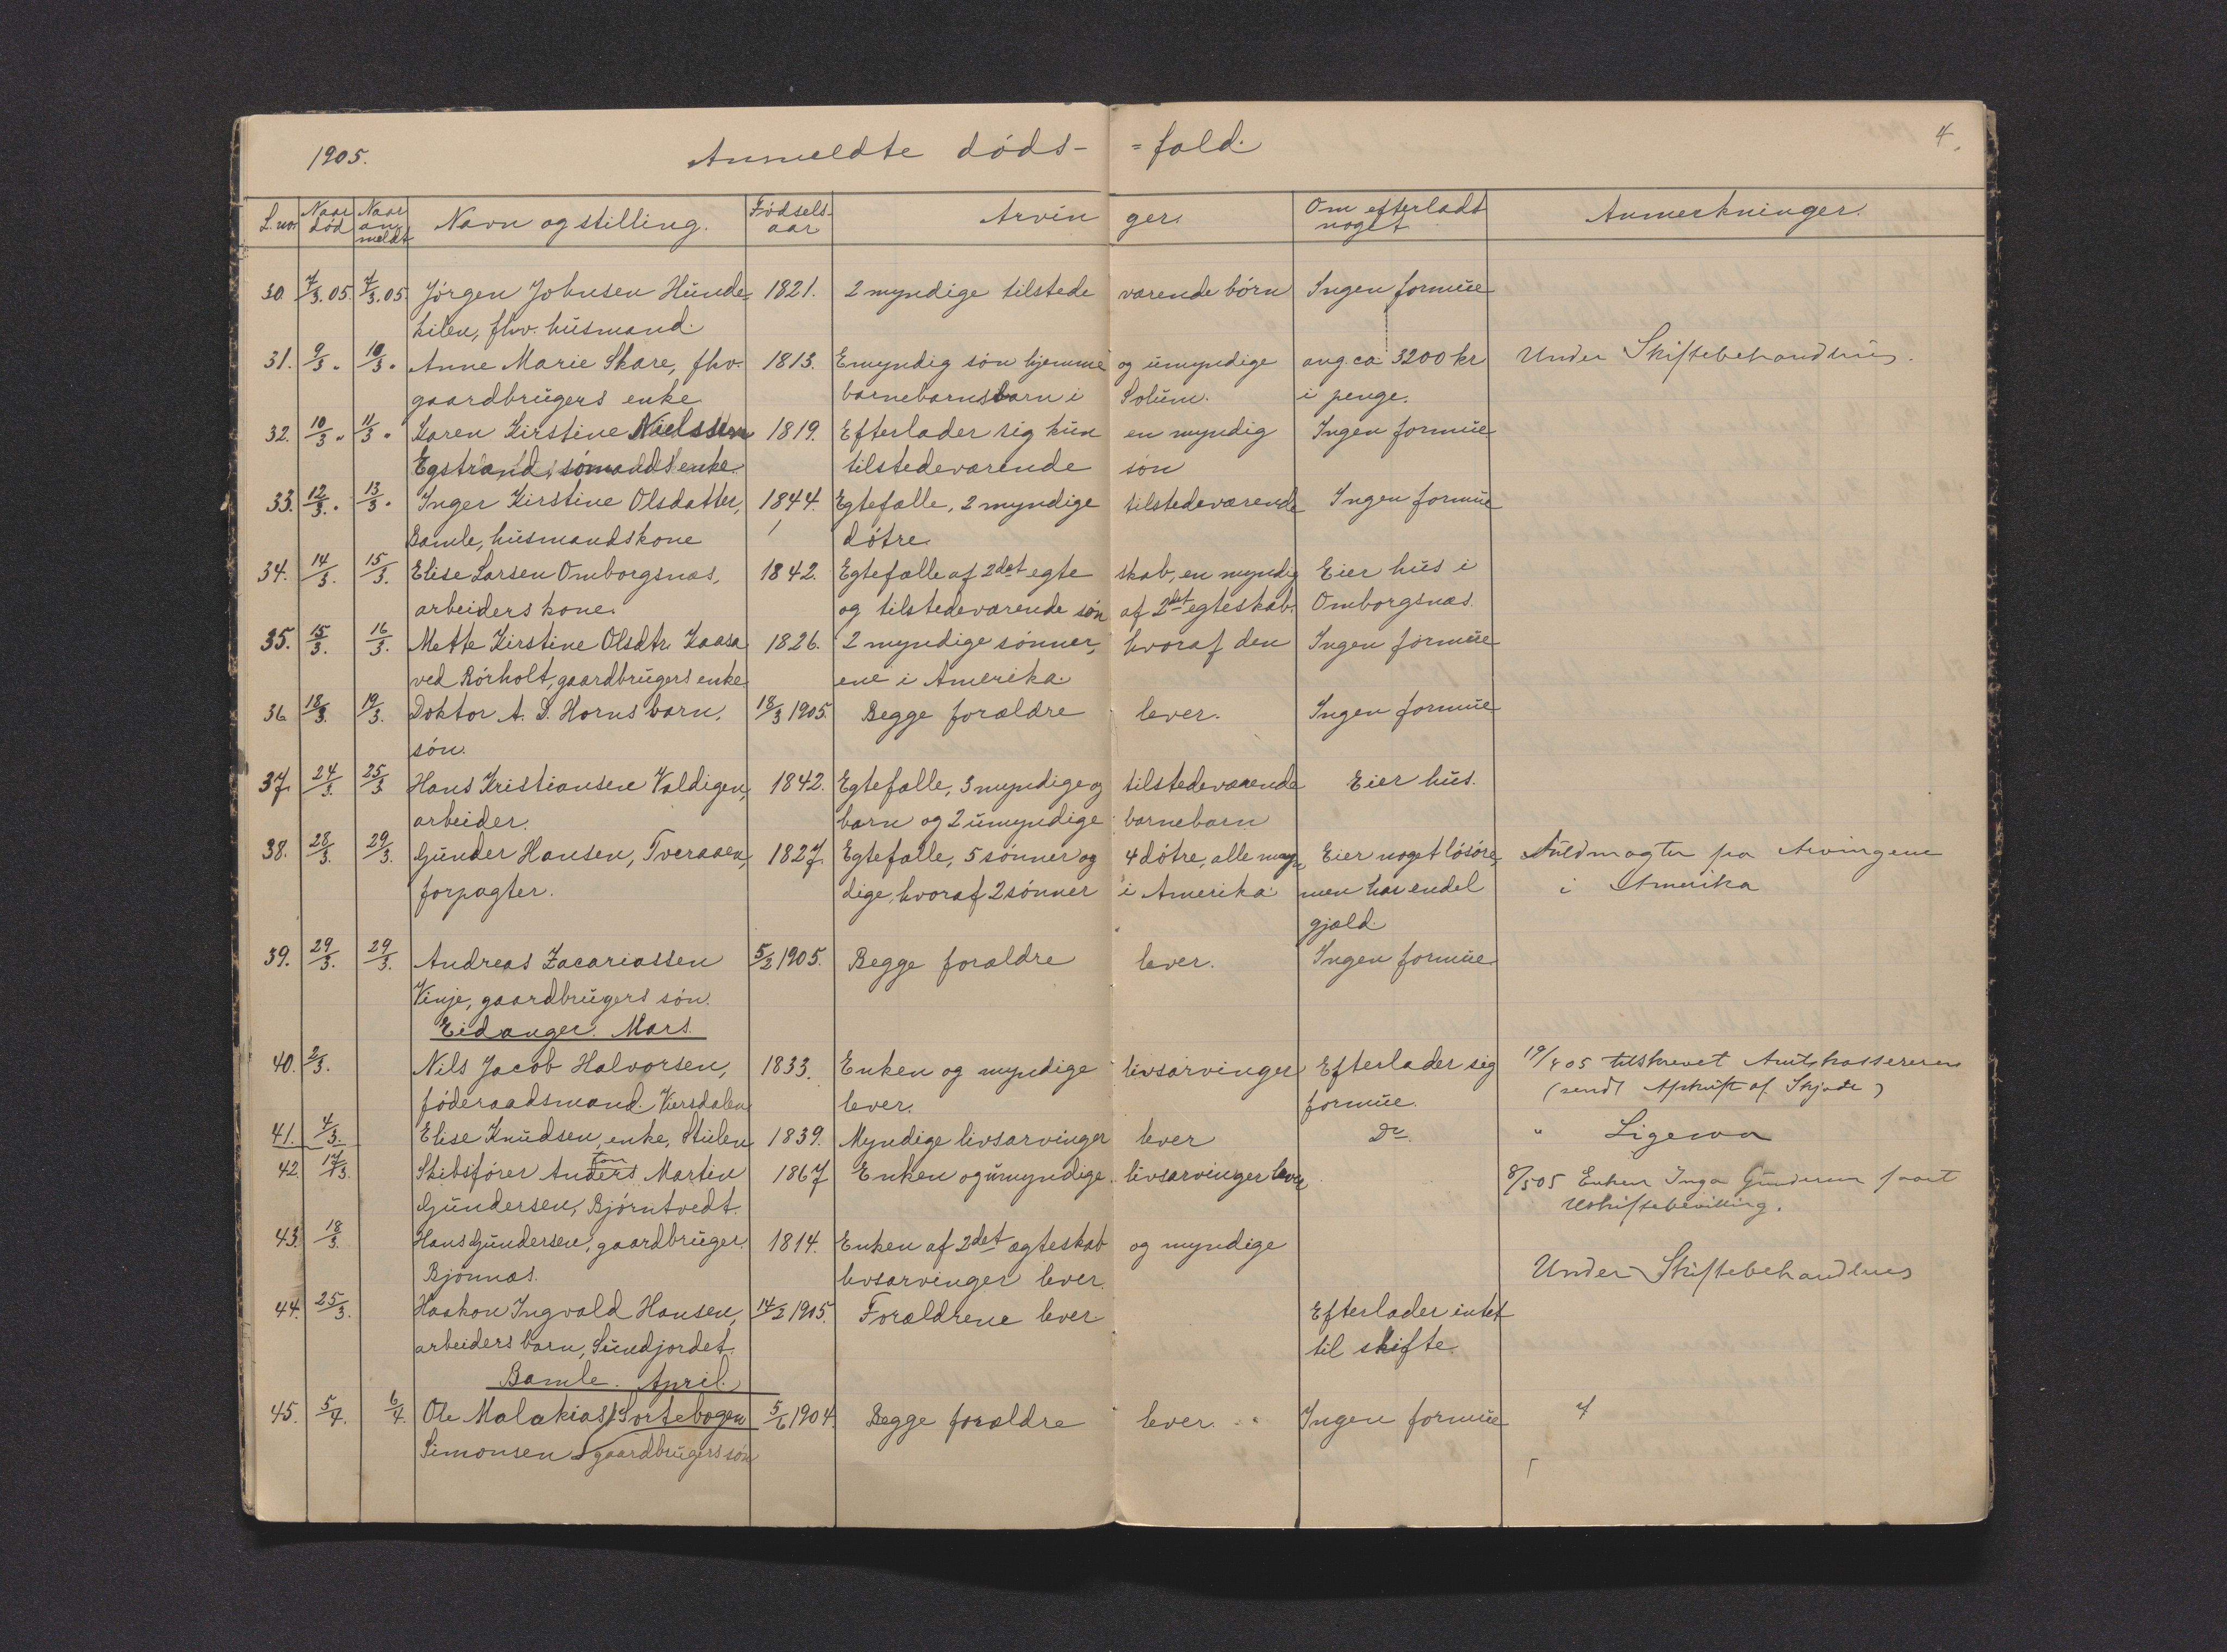 1905. Anmeldte döds- =fald. 4.
L.no. Naar död Naar an meldt Navn og stilling. Födsels- aar Arvin gers Om efterladt noget Anmerkninger.
30. 7/3.05. 7/3.05. Jörgen Johnsen Hunde- 1821. 2 myndige tilstede værende börn Ingen formue
kilen, fhv. husmand.
31. 9/3 " 10/3 " Anne Marie Skare, fhv. 1813. Emyndig sön hjemme og umyndige ang. ca 3200 kr Under Skiftebehandling.
gaardbrugers enke barnebarnsbarn i Solum. i penge.
32. 10/3 " 11/3 " Karen Kirstine Nielssen 1819. Efterlader sig kun en myndig Ingen formue
Egstrand, sömands enke. tilstedeværende sön
33. 12/3. " 13/3 " Inger Kirstine Olsdatter, 1844. Egtefælle, 2 myndige tilstedeværende Ingen formue
Bamle, husmandskone döttre.
34. 14/3. 15/3. Elise Larsen Omborgsnæs, 1842. Egtefælle af 2det egte skab, en myndig Eier hus i
arbeiders kone. og tilstedeværende sön af 2det egteskab. Omborgsnæs.
35. 15/3. 16/3. Mette Kirstine Olsdtr. Kaasa 1826. 2 myndige sönner, hvoraf den Ingen formue
ved Rörholt, gaardbrugers enke. ene i Amerika.
36 18/3. 19/3. Doktor A. D. Horns barn, 18/3 1905. Begge forældre lever. Ingen formue
sön.
37. 24/3. 25/3 Hans Kristiansen Valdigen, 1842. Egtefælle, 3 myndige og tilstedeværende Eier hus.
arbeider. barn og 2 umyndige barnebarn
38. 28/3. 29/3. Gunder Hansen, Tveraaen, 1827. Egtefælle, 5 sönner og 4 dötre, alle myn Eier noget lösöre, Fuldmagter fra Arvingene
forpagter. dige, hvoraf 2 sönner i Amerika men har endel i Amerika
gjæld.
39. 29/3. 29/3. Andreas Zacariassen 5/2 1905. Begge forældre lever. Ingen formue
Vinje, gaardbrugers sön.
Eidanger. Mars.
40. 2/3. Nils Jacob Halvorsen, 1833. Enken og myndige livsarvinger Efterlader sig 19/4 05 tilskrevet Amtskassereren
föderaadsmand. Versdalen lever. formue. (sendt Afskrift af Skjøde)
41. 4/3. Elise Knudsen, enke, Stulen 1839. Myndige livsarvinger lever Do. " Ligesaa
42. 17/3. Skibsförer Anders Martin 1867 Enken og umyndige livsarvinger lever 8/5 05 Enken Inga Gundersen faaet
Gundersen, Björntvedt. Uskiftebevilling.
43. 18/3. Hans Gundersen, gaardbruger. 1814. Enken af 2det ægteskab og myndige
Björnnæs. livsarvinger lever. Under Skiftebehandling
44. 25/3. Haakon Ingvald Hansen, 14/2 1905. Forældrene lever Efterlader intet
arbeiders barn, Sundjordet. til skifte.
Bamle. April.
45. 5/4. 6/4. Ole Malakias Sortebogen 5/6 1904. Begge forældre lever. Ingen formue
Simonsen gaardbrugers sön